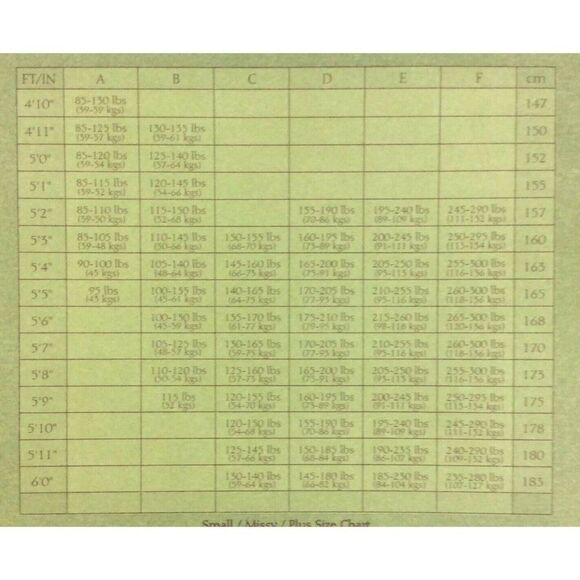 FT/IN A B C D E F cm
4'10" 85-130 lbs 147
(39-59 kgs)
4'11" 85-125 lbs 130-135 lbs 150
(39-57 kgs) (59-61 kgs)
5'0" 85-120 lbs 125-140 lbs 152
(39-54 kgs) (57-64 kgs)
5'1" 85-115 lbs 120-145 lbs 155
(39-52 kgs) (54-66 kgs)
5'2" 85-110 lbs 115-150 lbs 155-190 lbs 195-240 lbs 245-290 lbs 157
(39-50 kgs) (52-68 kgs) (70-86 kgs) (89-109 kgs) (111-132 kgs)
5'3" 85-105 lbs 110-145 lbs 150-155 lbs 160-195 lbs 200-245 lbs 250-295 lbs 160
(39-48 kgs) (50-66 kgs) (68-70 kgs) (73-89 kgs) (91-111 kgs) (113-134 kgs)
5'4" 90-100 lbs 105-140 lbs 145-160 lbs 165-200 lbs 205-250 lbs 255-300 lbs 163
(45 kgs) (48-64 kgs) (66-73 kgs) (75-91 kgs) (93-113 kgs) (116-136 kgs)
5'5" 95 lbs 100-135 lbs 140-165 lbs 170-205 lbs 210-255 lbs 260-300 lbs 165
(43 kgs) (45-61 kgs) (64-75 kgs) (77-93 kgs) (95-116 kgs) (118-136 kgs)
5'6" 100-130 lbs 135-170 lbs 175-210 lbs 215-260 lbs 265-300 lbs 168
(45-59 kgs) (61-77 kgs) (79-95 kgs) (98-118 kgs) (120-136 kgs)
5'7" 105-125 lbs 130-165 lbs 170-205 lbs 210-255 lbs 260-300 lbs 170
(48-57 kgs) (59-75 kgs) (77-93 kgs) (95-116 kgs) (118-136 kgs)
5'8" 110-120 lbs 125-160 lbs 165-200 lbs 205-250 lbs 255-300 lbs 173
(50-54 kgs) (57-73 kgs) (75-91 kgs) (93-113 kgs) (116-136 kgs)
5'9" 115 lbs 120-155 lbs 160-195 lbs 200-245 lbs 250-295 lbs 175
(52 kgs) (54-70 kgs) (73-89 kgs) (91-111 kgs) (113-134 kgs)
5'10" 120-150 lbs 155-190 lbs 195-240 lbs 245-290 lbs 178
(54-68 kgs) (70-86 kgs) (89-109 kgs) (111-132 kgs)
5'11" 125-145 lbs 150-185 lbs 190-235 lbs 240-290 lbs 180
(57-66 kgs) (68-84 kgs) (86-107 kgs) (109-132 kgs)
6'0" 130-140 lbs 145-180 lbs 185-230 lbs 235-280 lbs 183
(59-64 kgs) (66-82 kgs) (84-104 kgs) (107-127 kgs)
Small / Missy / Plus Size Chart